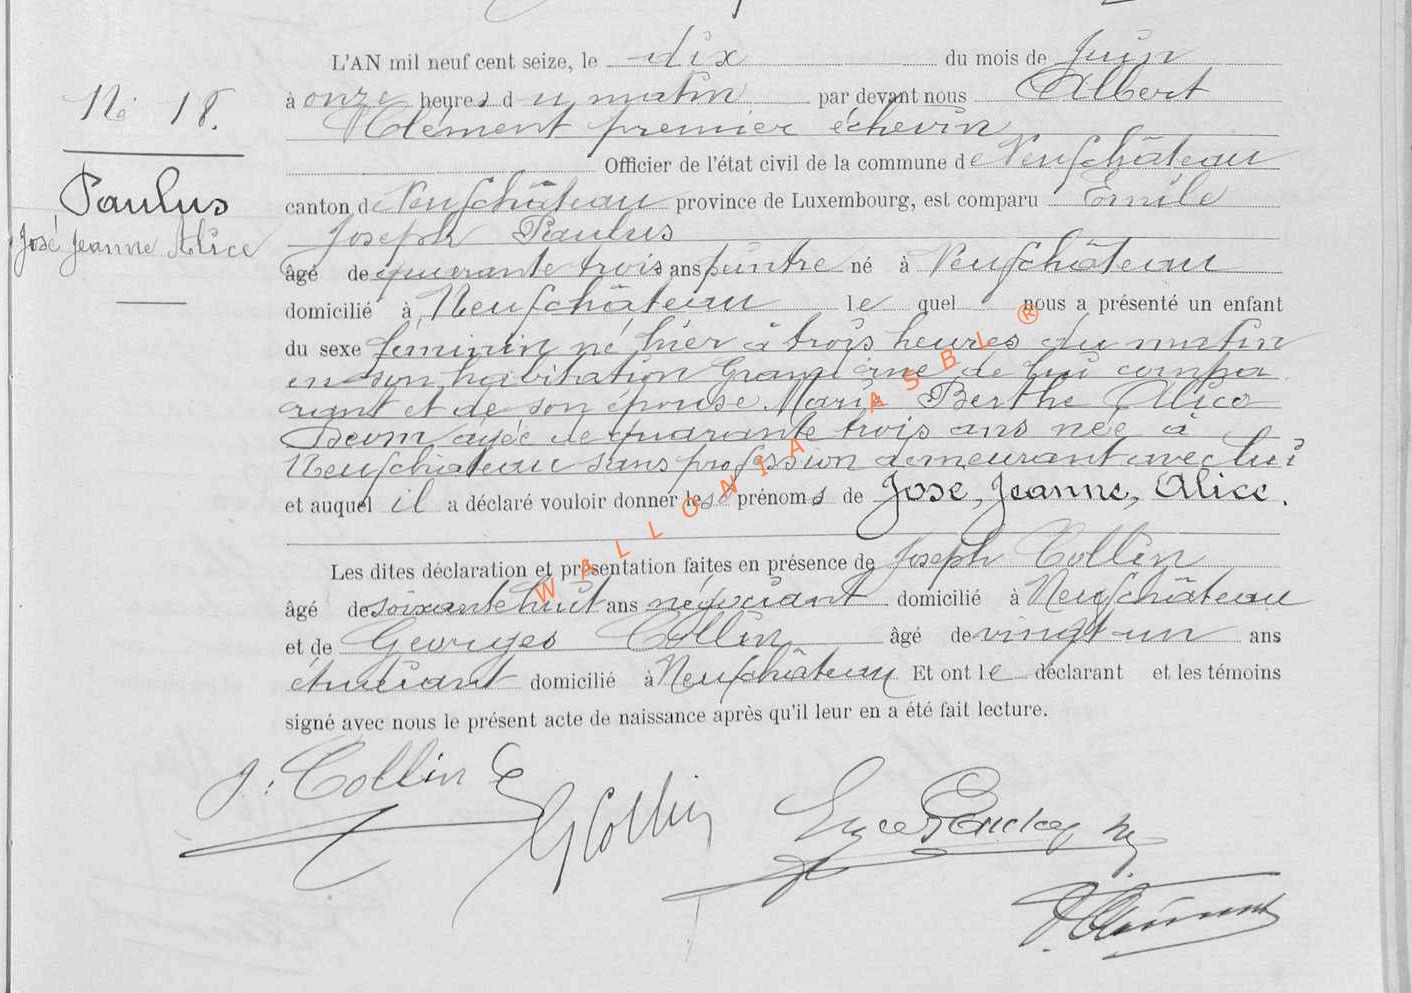 L'AN mil neuf cent seize, le dix du mois de Juin
No 18.
à onze heures du matin par devant nous Albert
Clément premier échevin
Officier de l'état civil de la commune de Neufchâteau
Paulus
José Jeanne Alice
canton de Neufchâteau province de Luxembourg, est comparu Emile
Joseph Paulus
âgé de quarante trois ans peintre né à Neufchâteau
domicilié à Neufchâteau lequel nous a présenté un enfant
du sexe féminin né hier à trois heures du matin
en son habitation Grand'rue de lui compa
rant et de son épouse Marie Berthe Alice
âgée de quarante trois ans née à
Neufchâteau sans profession demeurant avec lui
et auquel il a déclaré vouloir donner les prénoms de José, Jeanne, Alice.
Les dites déclaration et présentation faites en présence de Joseph Collin
âgé de soixante huit ans négociant domicilié à Neufchâteau
et de Georges Collin âgé de vingt un ans
étudiant domicilié à Neufchâteau Et ont le déclarant et les témoins
signé avec nous le présent acte de naissance après qu'il leur en a été fait lecture.
J. Collin
G Collin
A. Clément
WALLONIA ASBL ®